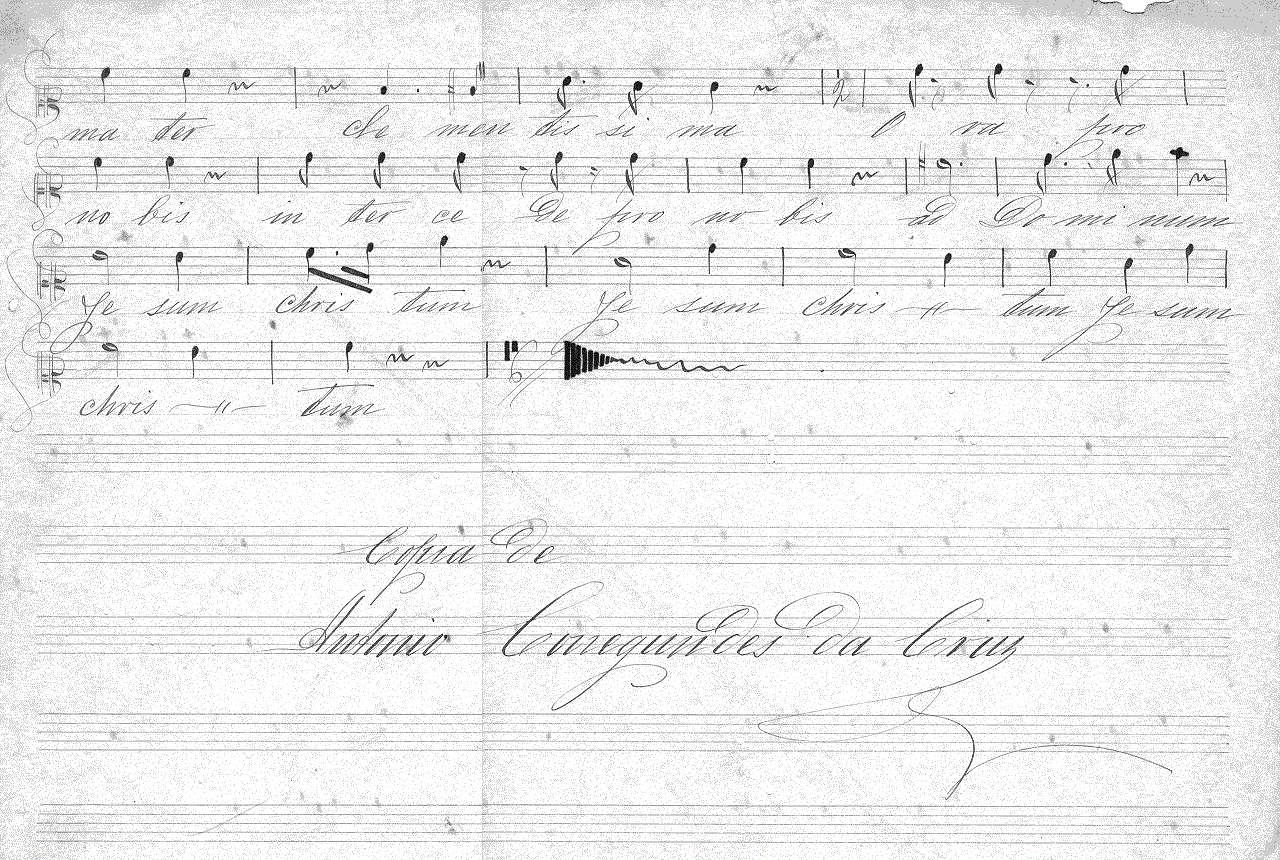 ma ter cle men tis si ma O ra pro
no bis in ter ce de pro no bis ad Do mi num
Je sum chris tum Je sum chris - " - tum Je sum
chris - " - tum
Copia de
Antonio Conegundes da Cruz